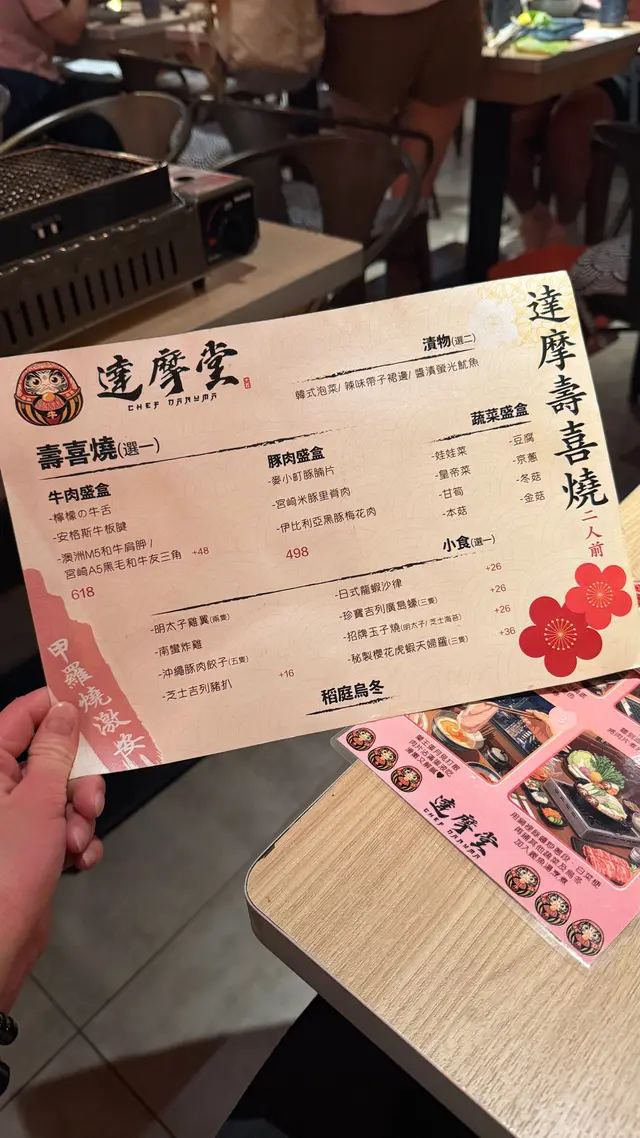 達摩堂
CHEF DARUMA
漬物(選二)
韓式泡菜/ 辣味帶子裙邊/ 醬漬螢光魷魚
壽喜燒(選一)
牛肉盛盒
-檸檬の牛舌
-安格斯牛板腱
-澳洲M5和牛肩胛 /
宮崎A5黑毛和牛友三角 +48
618
豚肉盛盒
-麥小町豚腩片
-宮崎米豚里脊肉
-伊比利亞黑豚梅花肉
498
蔬菜盛盒
-娃娃菜
-皇帝菜
-甘筍
-本菇
-豆腐
-京蔥
-冬菇
-金菇
小食(選一)
-明太子雞翼(兩隻)
-南蠻炸雞
-沖繩豚肉餃子(五隻)
-芝士吉列豬扒 +16
-日式龍蝦沙律 +26
-珍寶吉列廣島蠔(三隻) +26
-招牌玉子燒(明太子/ 芝士海苔) +26
-秘製櫻花虎蝦天婦羅(三隻) +36
稻庭烏冬
達摩壽喜燒
二人前
甲羅燒激安
達摩堂
CHEF DARUMA
加入鰹魚湯烹煮